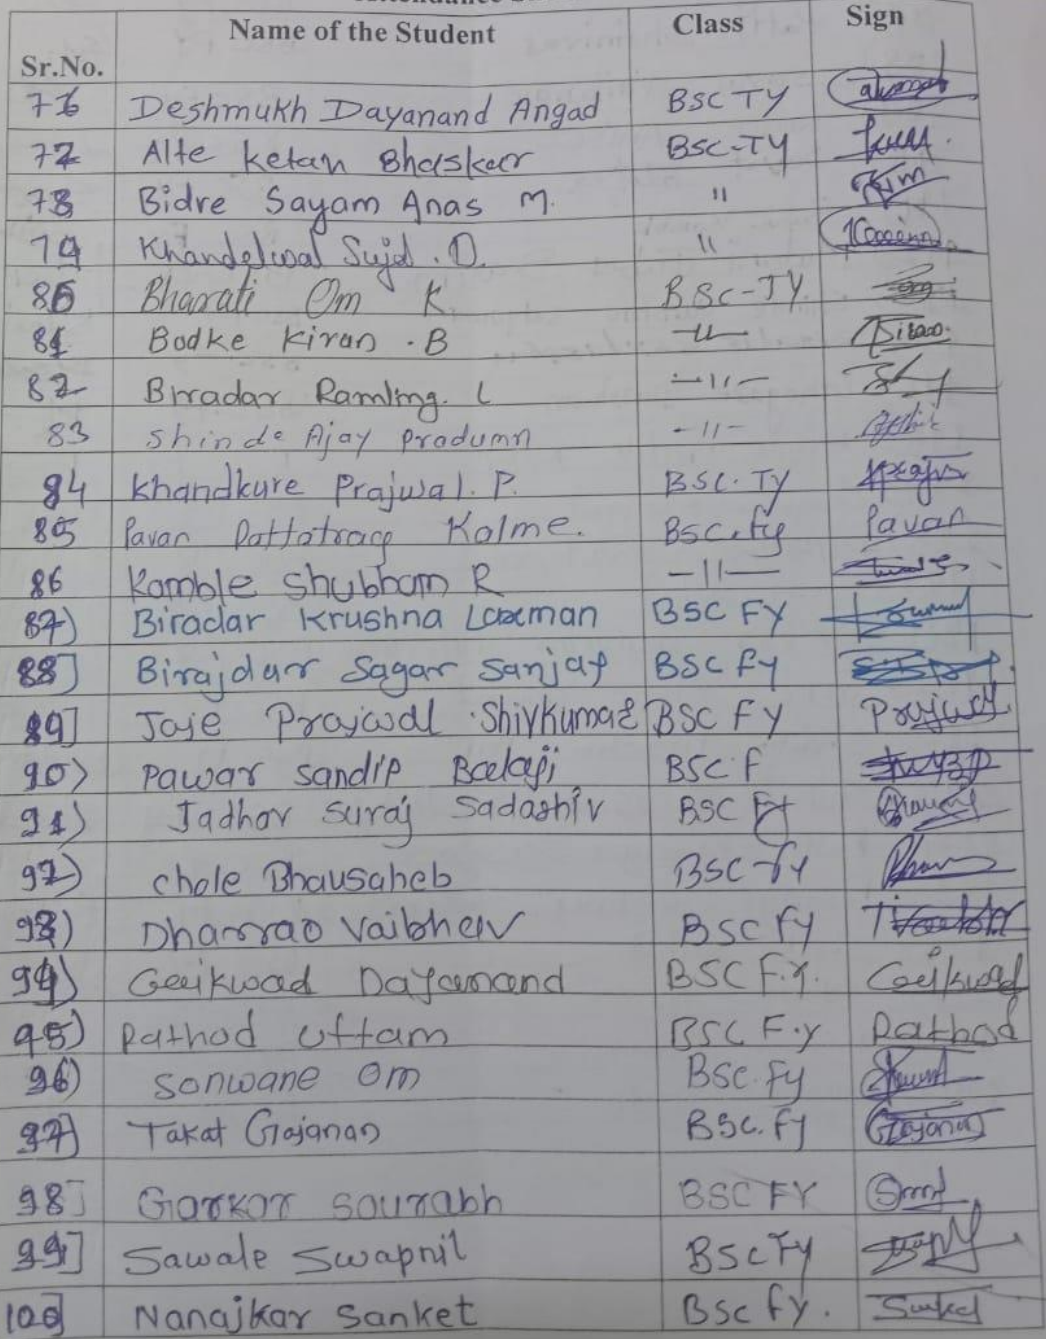 Sr.No. Name of the Student Class Sign
76 Deshmukh Dayanand Angad BSC TY
77 Alte Ketan Bhaskar BSC-TY
78 Bidre Sayam Anas M. "
79 Khandelwal Sujal . D. "
80 Bharati Om K BSC-TY
81 Bodke Kiran . B -"-
82 Biradar Ramling. L -"-
83 Shinde Ajay Pradumn -"-
84 Khandkure Prajwal. P. BSC. TY
85 Pavan Dattatray Kalme. BSC. fy Pavan
86 Kamble Shubham R -"-
87) Biradar Krushna Laxman BSC FY
88] Birajdar Sagar Sanjay BSC fy
89] Jaje Prajwal Shivkumar BSC FY Prajwal
90) Pawar Sandip Balaji BSC F
91) Jadhav Suraj Sadashiv BSC Fy
92) Chole Bhausaheb BSC-fy
93) Dharrao Vaibhav BSC fy
94) Gaikwad Dayanand BSC F.Y. Gaikwad
95) Rathod Uttam BSC F.y Rathod
96) Sonwane Om BSC. fy
97) Takat Gajanan BSC. fy Gajanan
98] Garkar Sourabh BSC FY
99] Sawale Swapnil BSC Fy
100] Nanajkar Sanket BSC fy. Sanket